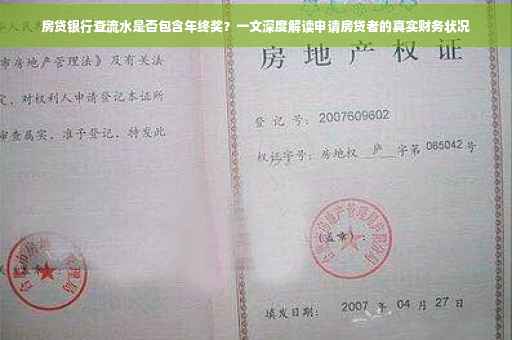 房贷银行查流水是否包含年终奖？一文深度解读申请房贷者的真实财务状况
市房地产管理法》及有关法
定，对权利人申请登记本证所
审查属实，准予登记，特发此
房地产权证
登记号：2007609602
权证字号：房地权 庐 字第 085042 号
（盖章）：
填发日期：2007 年 04 月 27 日